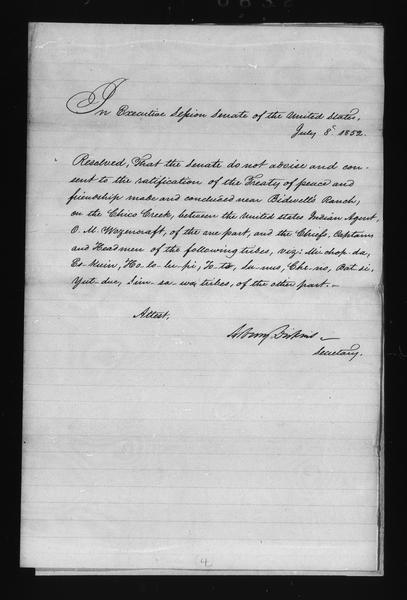 In Executive Session Senate of the United States,
July 8. 1852.
Resolved, That the Senate do not advise and con-
sent to the ratification of the Treaty of peace and
friendship made and concluded near Bidwell's Ranch,
on the Chico Creek, between the United States Indian Agent,
O. M. Wozencraft, of the one part, and the Chiefs, Captains
and Headmen of the following tribes, viz: Mi-chop-da,
Es-kuin, Ho-lo-lu-pi, To-to, Su-nus, Che-no, Bat-si,
Yut-duc, Sim-sa-wa tribes, of the other part.
Attest,
Secretary.
4